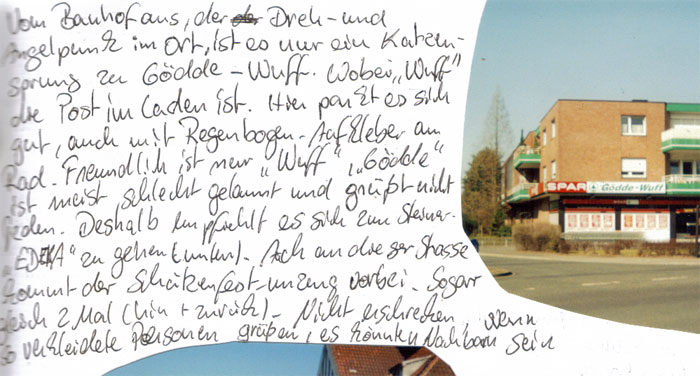 Vom Bahnhof aus, der Dreh- und
Angelpunkt im Ort, ist es nur ein Katzen-
sprung zu Gödde-Wuff. Wobei „Wuff"
die Post im Laden ist. Hier parkt es sich
gut, auch mit Regenbogen-Aufkleber am
Rad. Freundlich ist nur „Wuff", „Gödde"
ist meist schlecht gelaunt und grüßt nicht
jeden. Deshalb empfiehlt es sich zum
„EDEKA" zu gehen (unten). Auch an dieser Strasse
kommt der Schützenfest-umzug vorbei. Sogar
gleich 2 Mal (hin + zurück). Nicht erschrecken, wenn
so verkleidete Personen grüßen, es könnten Nachbarn sein
SPAR Gödde-Wuff